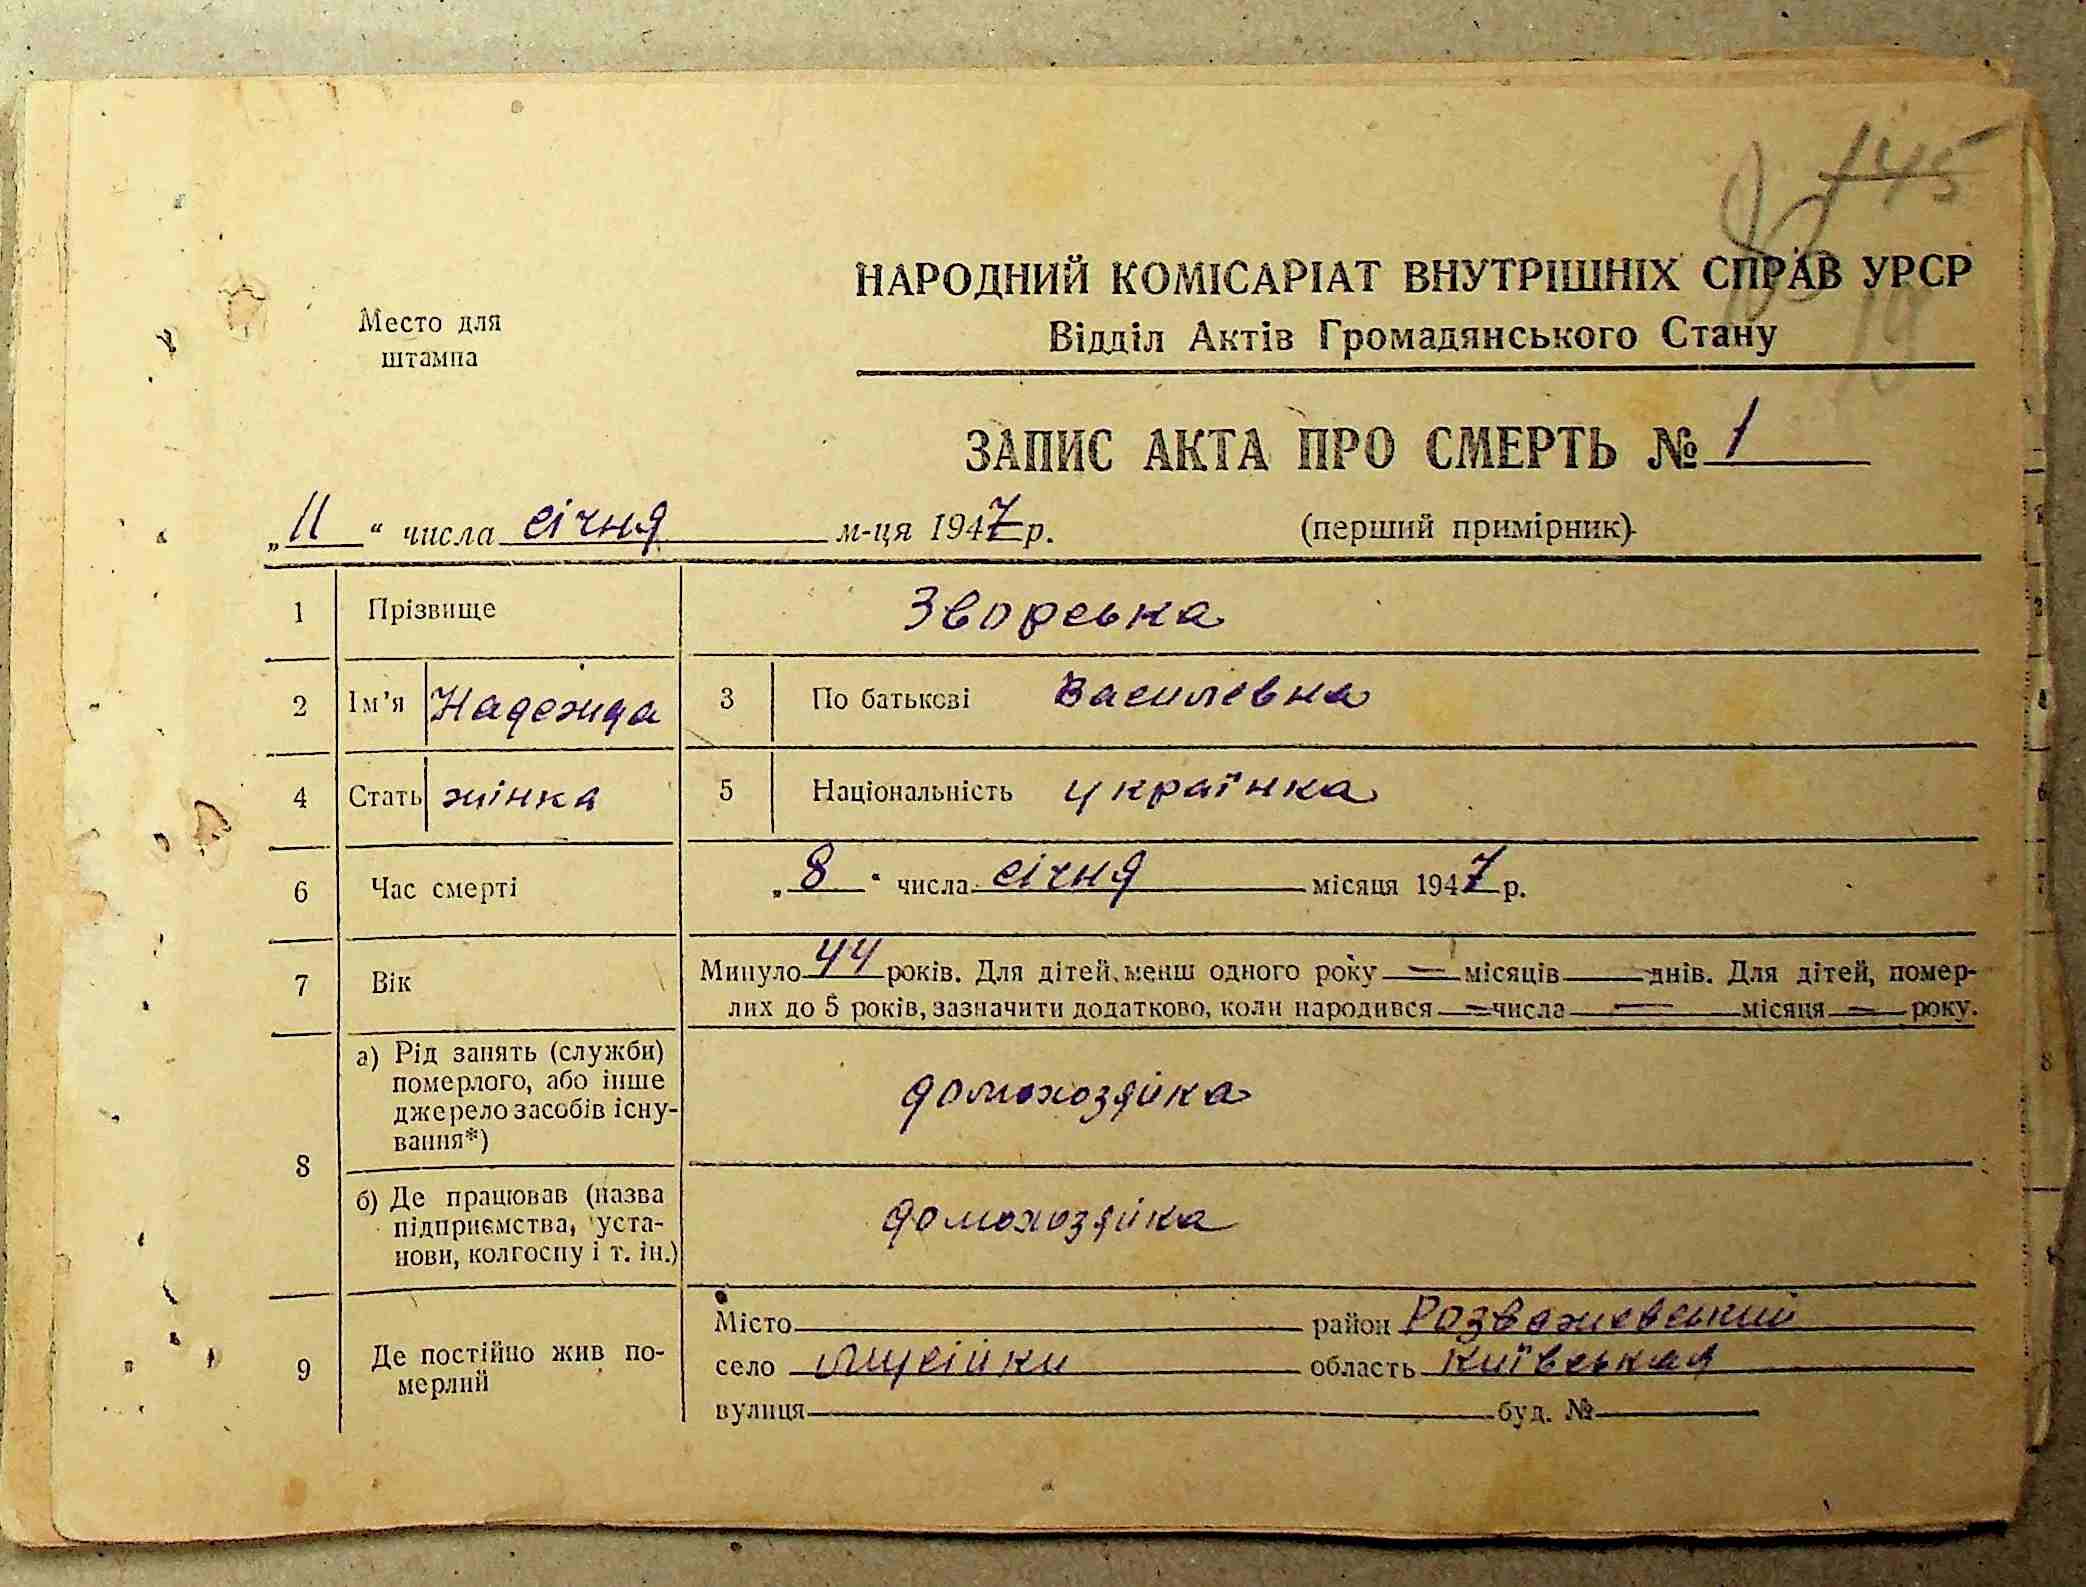 145
НАРОДНИЙ КОМІСАРІАТ ВНУТРІШНІХ СПРАВ УРСР
Відділ Актів Громадянського Стану
Место для
штампа
ЗАПИС АКТА ПРО СМЕРТЬ № 1
„11“ числа січня м-ця 1947 р. (перший примірник)
1 Прізвище Зворська
2 Ім'я Надежда 3 По батькові Василевна
4 Стать жінка 5 Національність українка
6 Час смерті „8“ числа січня місяця 1947 р.
7 Вік Минуло 44 років. Для дітей, менш одного року — місяців — днів. Для дітей, помер-
лих до 5 років, зазначити додатково, коли народився — числа — місяця — року.
8 а) Рід занять (служби)
померлого, або інше
джерело засобів існу-
вання*)
домохозяйка
б) Де працював (назва
підприємства, уста-
нови, колгоспу і т. ін.)
домохозяйка
9 Де постійно жив по-
мерлий
Місто район Розважевський
село область Київськая
вулиця буд. №